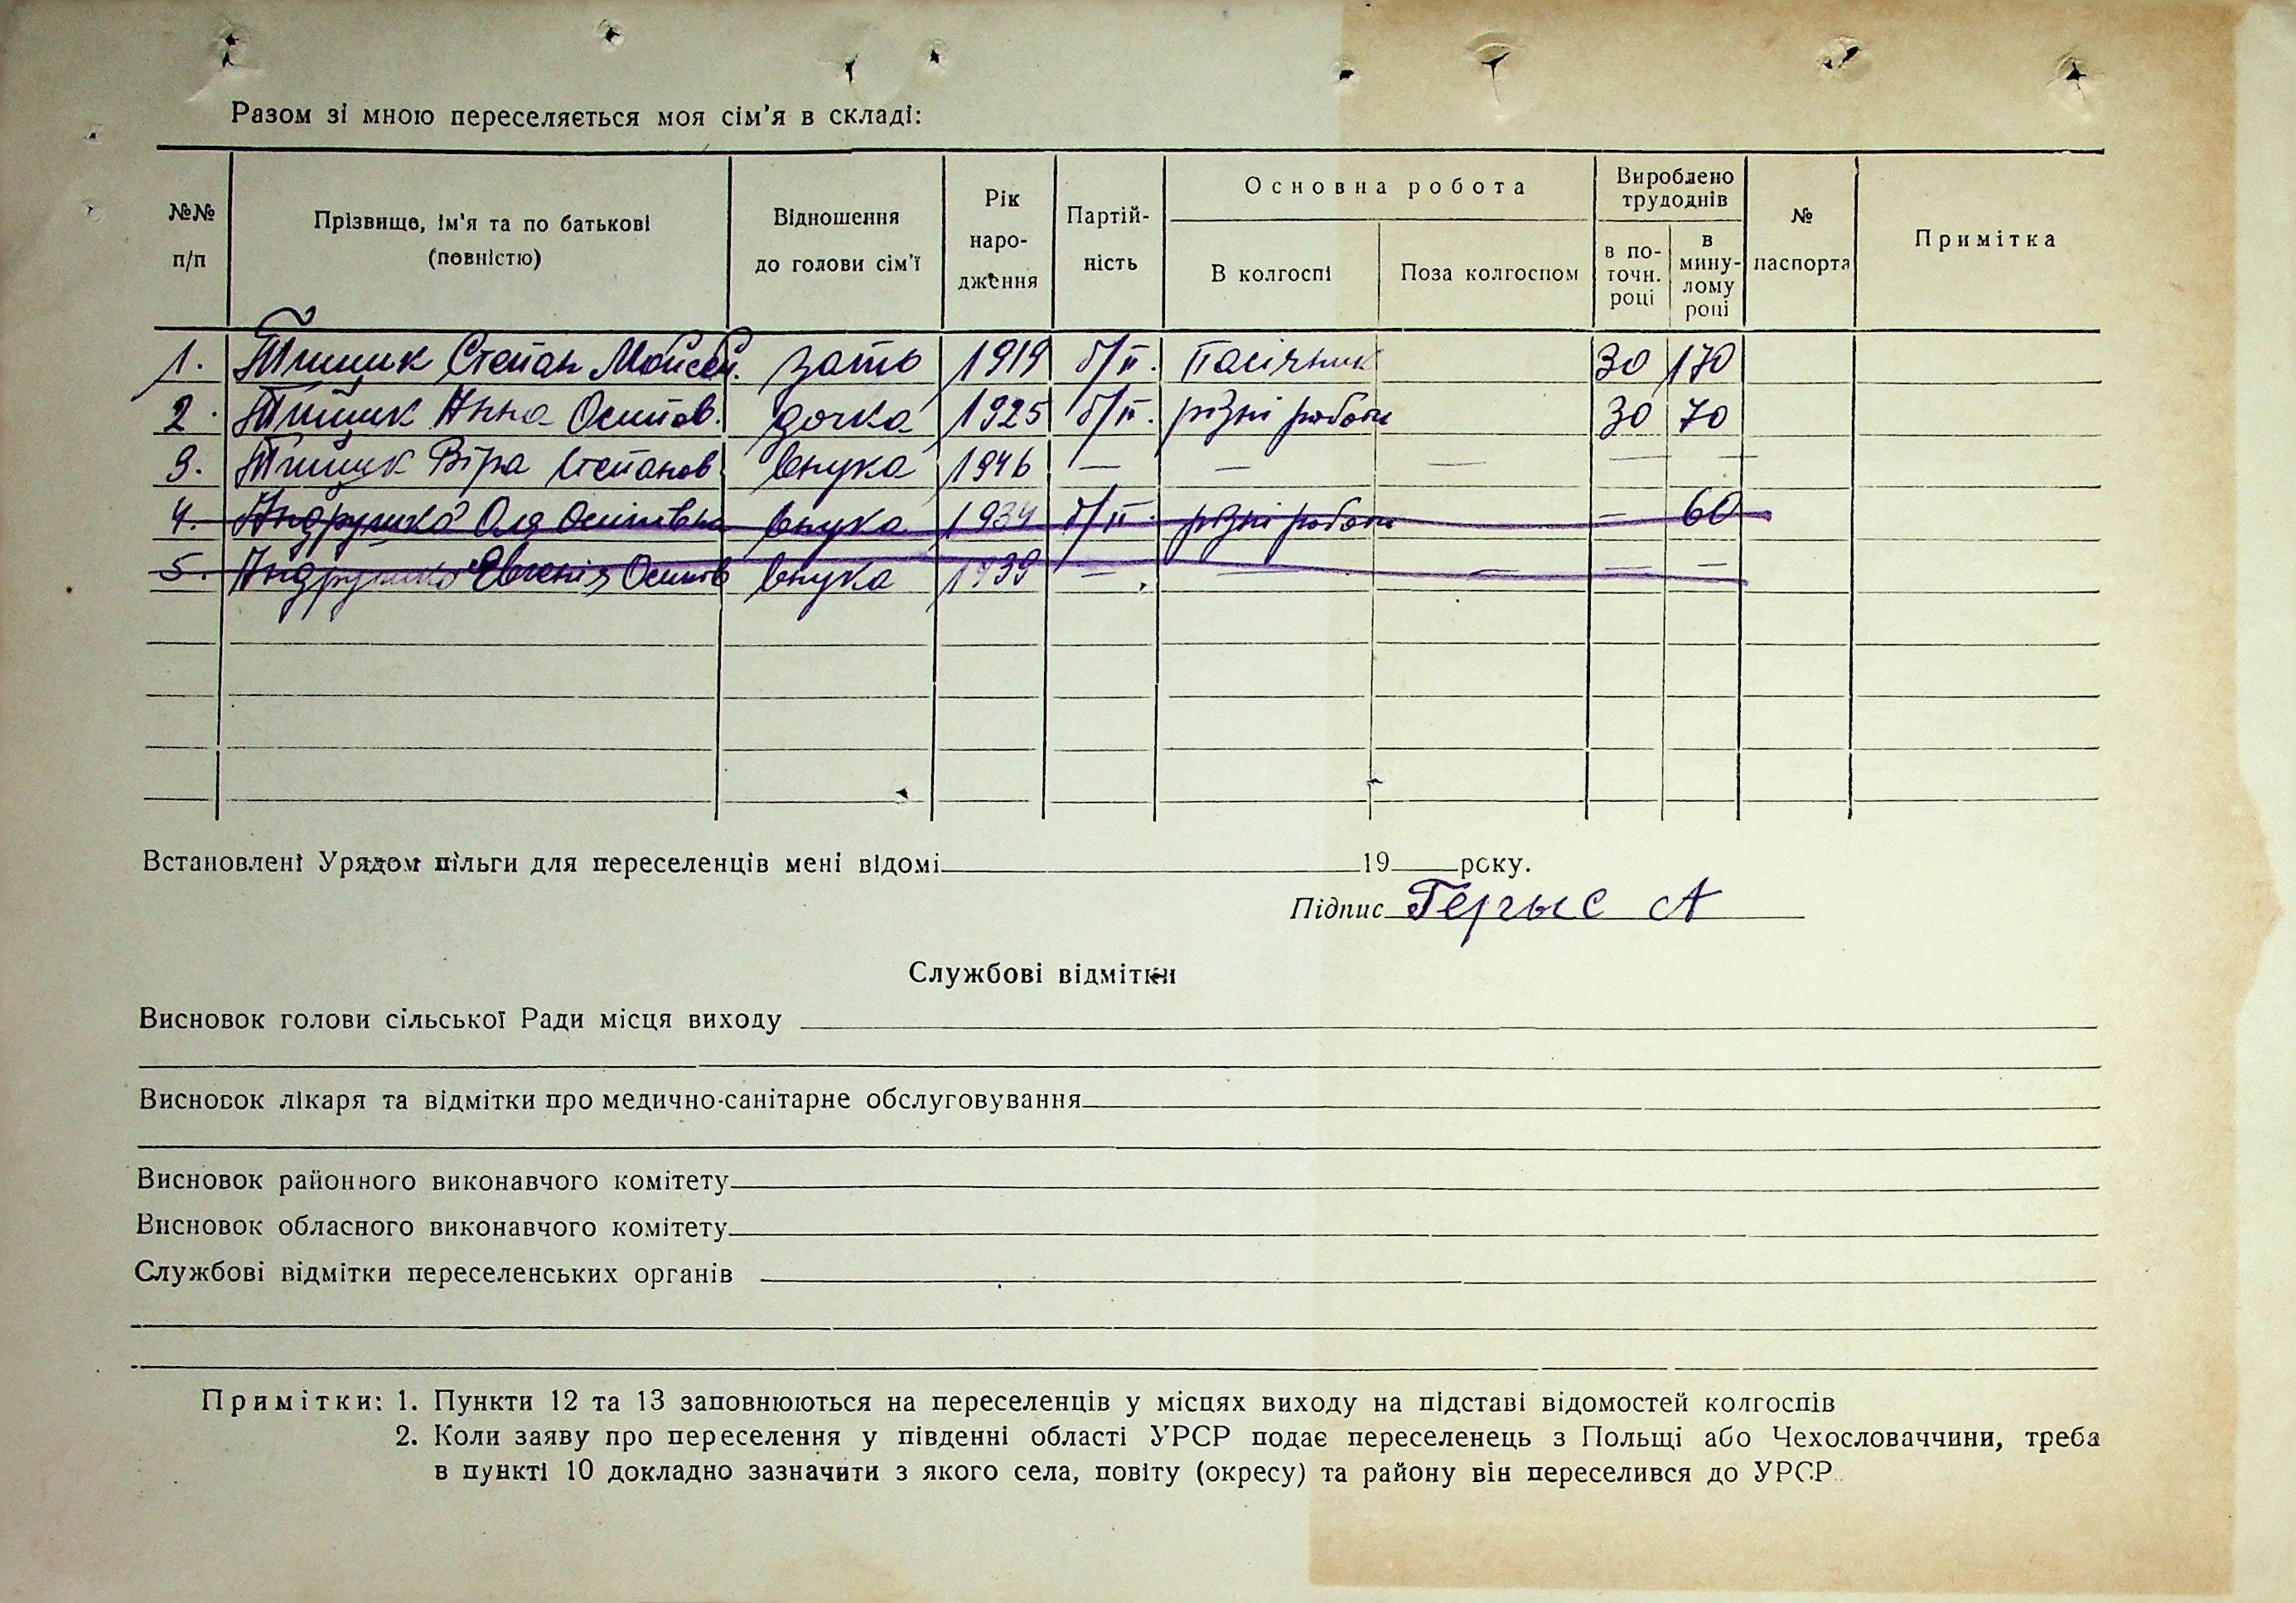 Разом зі мною переселяється моя сім'я в складі:
№№ п/п
Прізвище, ім'я та по батькові (повністю)
Відношення до голови сім'ї
Рік народження
Партійність
Основна робота
В колгоспі
Поза колгоспом
Вироблено трудоднів
в поточн. році
в минулому році
№ паспорта
Примітка
1. Тишик Степан Мойсей. зать 1919 б/п. Пасічник 30 170
2. Тишик Анна Осипов. дочка 1925 б/п. різні роботи 30 70
3. Тишик Віра Степанов внука 1946 — — — — —
4. Андрушко Оля Осипівна внука 1934 б/п. різні роботи — 60
5. Андрушко Євгенія Осипів внука 1939 — — — — —
Встановлені Урядом пільги для переселенців мені відомі 19 року.
Підпис Гергыс А
Службові відмітки
Висновок голови сільської Ради місця виходу
Висновок лікаря та відмітки про медично-санітарне обслуговування
Висновок районного виконавчого комітету
Висновок обласного виконавчого комітету
Службові відмітки переселенських органів
Примітки: 1. Пункти 12 та 13 заповнюються на переселенців у місцях виходу на підставі відомостей колгоспів
2. Коли заяву про переселення у південні області УРСР подає переселенець з Польщі або Чехословаччини, треба
в пункті 10 докладно зазначити з якого села, повіту (окресу) та району він переселився до УРСР.